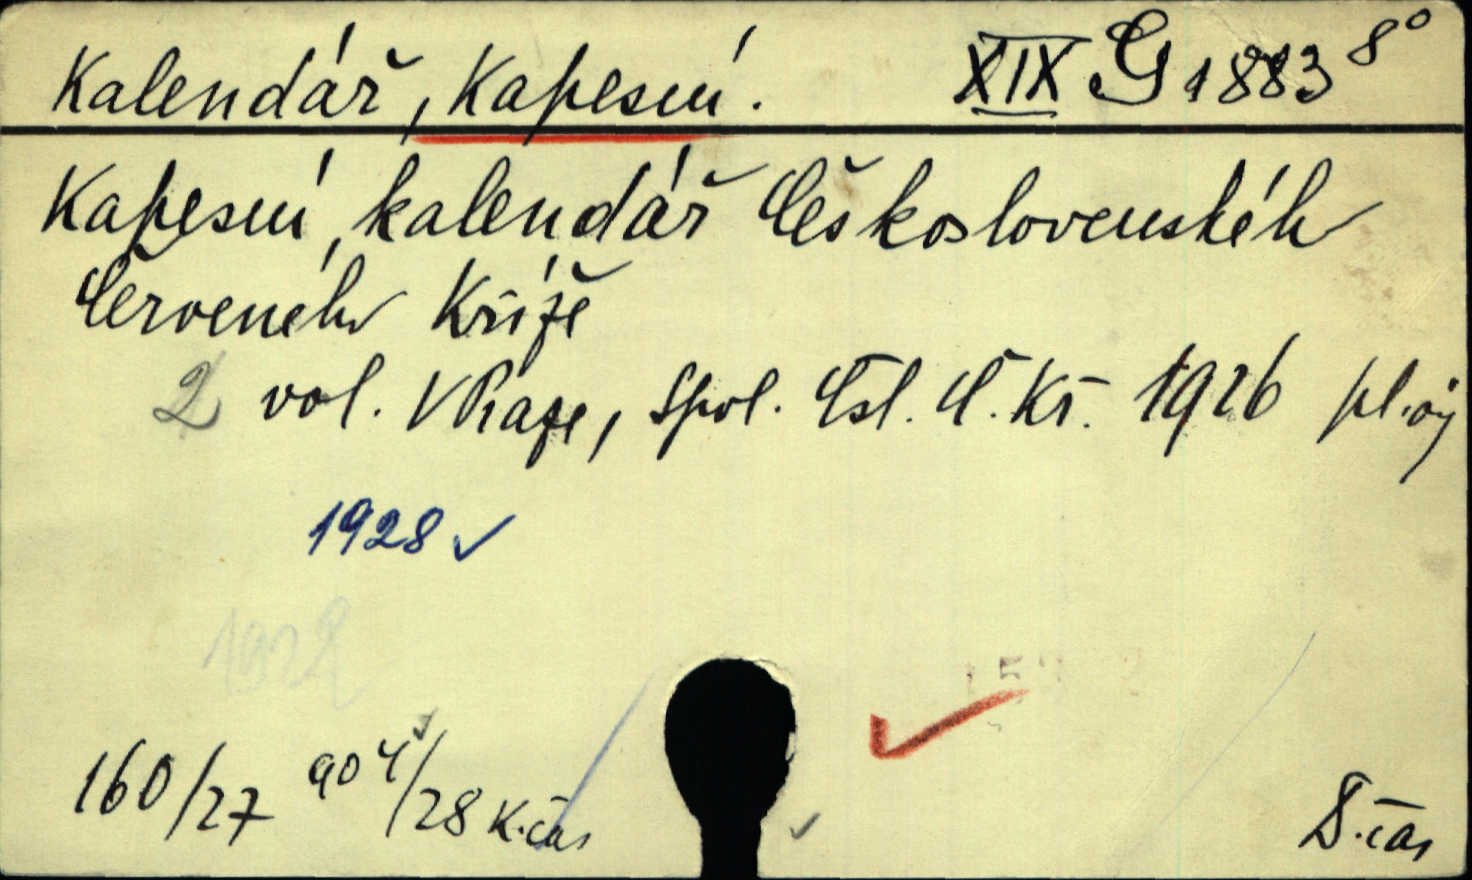 Kalendář, Kapesní. XIX G 1883 8°
Kapesní kalendář Československého
Červeného Kříže
2 vol. V Praze, Spol. Čsl. Č. Kř. 1926 pl. oý
1928 ✓
1932
160/27 904/28 K. čas
D. čas